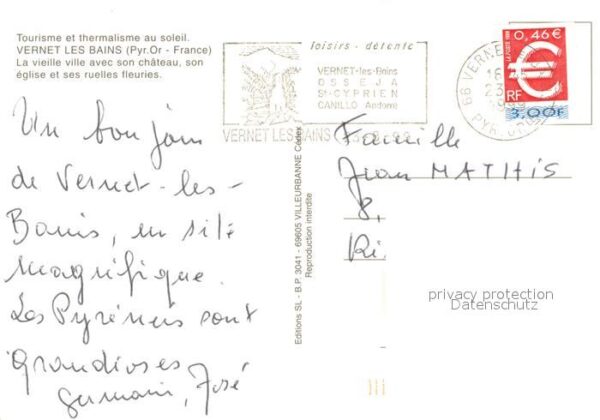 Tourisme et thermalisme au soleil.
VERNET LES BAINS (Pyr.Or - France)
La vieille ville avec son château, son
église et ses ruelles fleuries.
loisirs - détente
VERNET-les-Bains
OSSEJA
St-CYPRIEN
CANILLO Andorre
VERNET LES BAINS
66 VERNE
0,46€
LA POSTE 1999
RF
3,00F
Un bonjour
de Vernet-les-
Bains, un site
magnifique.
Les Pyrénées sont
grandioses
Germain, José
Editions SL - B.P. 3041 - 69605 VILLEURBANNE Cédex
Reproduction interdite
Famille
Jean MATHIS
8,
Ri
privacy protection
Datenschutz